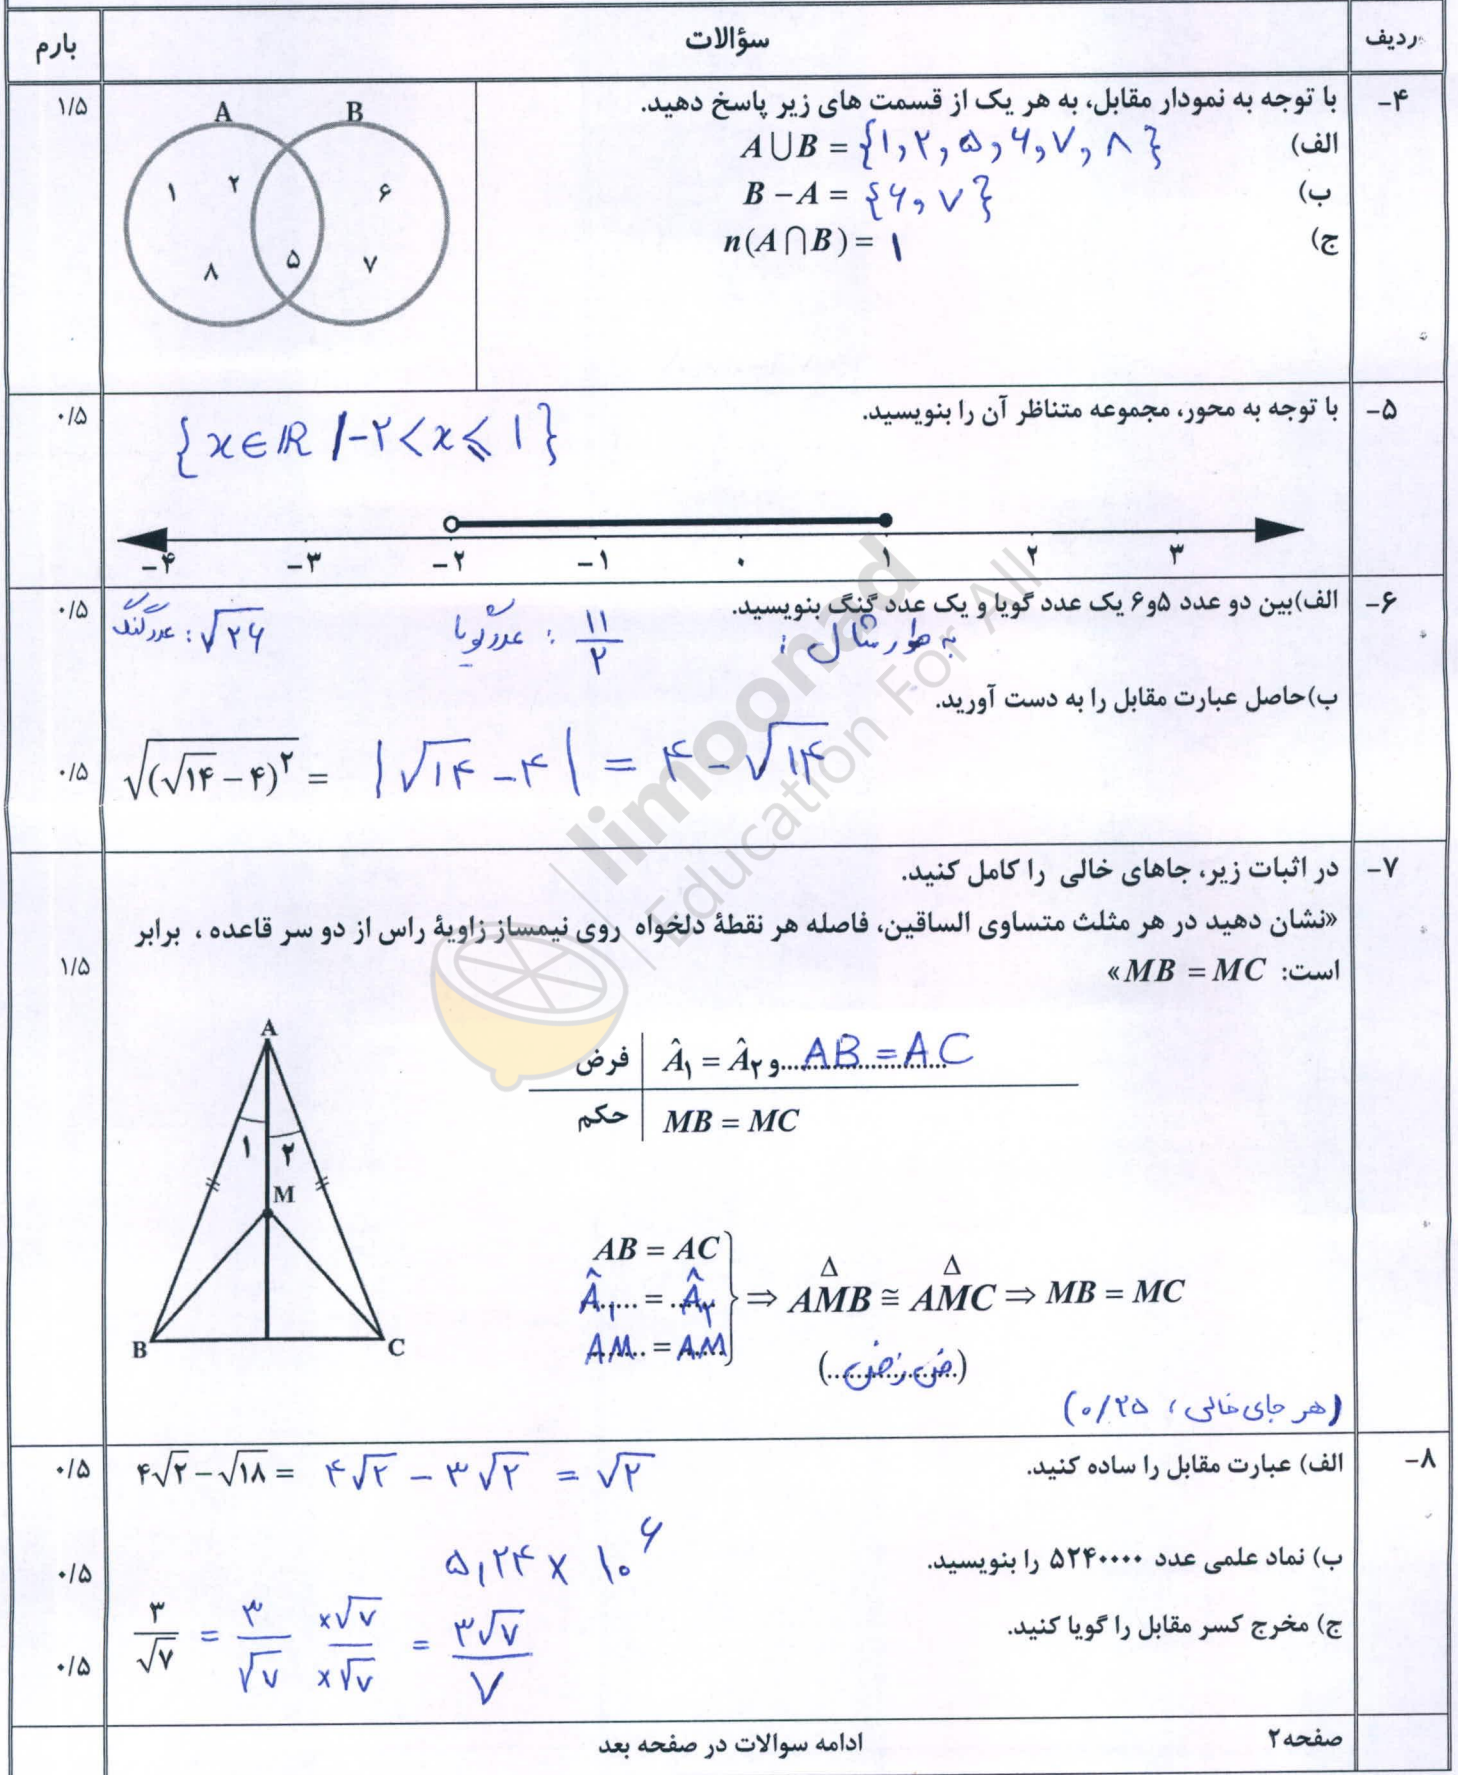 ردیف سؤالات بارم
۴- با توجه به نمودار مقابل، به هر یک از قسمت های زیر پاسخ دهید. ۱/۵
الف) A∪B = {۱, ۲, ۵, ۶, ۷, ۸}
ب) B − A = {۶, ۷}
ج) n(A∩B) = ۱
A B
۱ ۲ ۶
۸ ۵ ۷
۵- با توجه به محور، مجموعه متناظر آن را بنویسید. ۰/۵
{x∈ℝ | −۲ < x ⩽ ۱}
−۴ −۳ −۲ −۱ ۰ ۱ ۲ ۳
۶- الف)بین دو عدد ۵و۶ یک عدد گویا و یک عدد گنگ بنویسید. ۰/۵
به طور مثال : ۱۱/۲ : عدد گویا √۲۶ : عدد گنگ
ب)حاصل عبارت مقابل را به دست آورید.
√((√۱۴ − ۴)^۲) = |√۱۴ − ۴| = ۴ − √۱۴ ۰/۵
limoonad
Education For All
۷- در اثبات زیر، جاهای خالی را کامل کنید.
«نشان دهید در هر مثلث متساوی الساقین، فاصله هر نقطهٔ دلخواه روی نیمساز زاویهٔ راس از دو سر قاعده ، برابر
است: MB = MC» ۱/۵
فرض | Â۱ = Â۲ و AB = AC
حکم | MB = MC
A
۱ ۲
M
B C
AB = AC
Â۱ = Â۲ } ⇒ AMB ≅ AMC ⇒ MB = MC
AM = AM
(ض ز ض)
(هر جای خالی ، ۰/۲۵)
۸- الف) عبارت مقابل را ساده کنید. ۴√۲ − √۱۸ = ۴√۲ − ۳√۲ = √۲ ۰/۵
ب) نماد علمی عدد ۵۲۴۰۰۰۰ را بنویسید. ۵,۲۴ × ۱۰^۶ ۰/۵
ج) مخرج کسر مقابل را گویا کنید. ۳/√۷ = ۳/√۷ ×√۷/×√۷ = ۳√۷/۷ ۰/۵
صفحه۲ ادامه سوالات در صفحه بعد